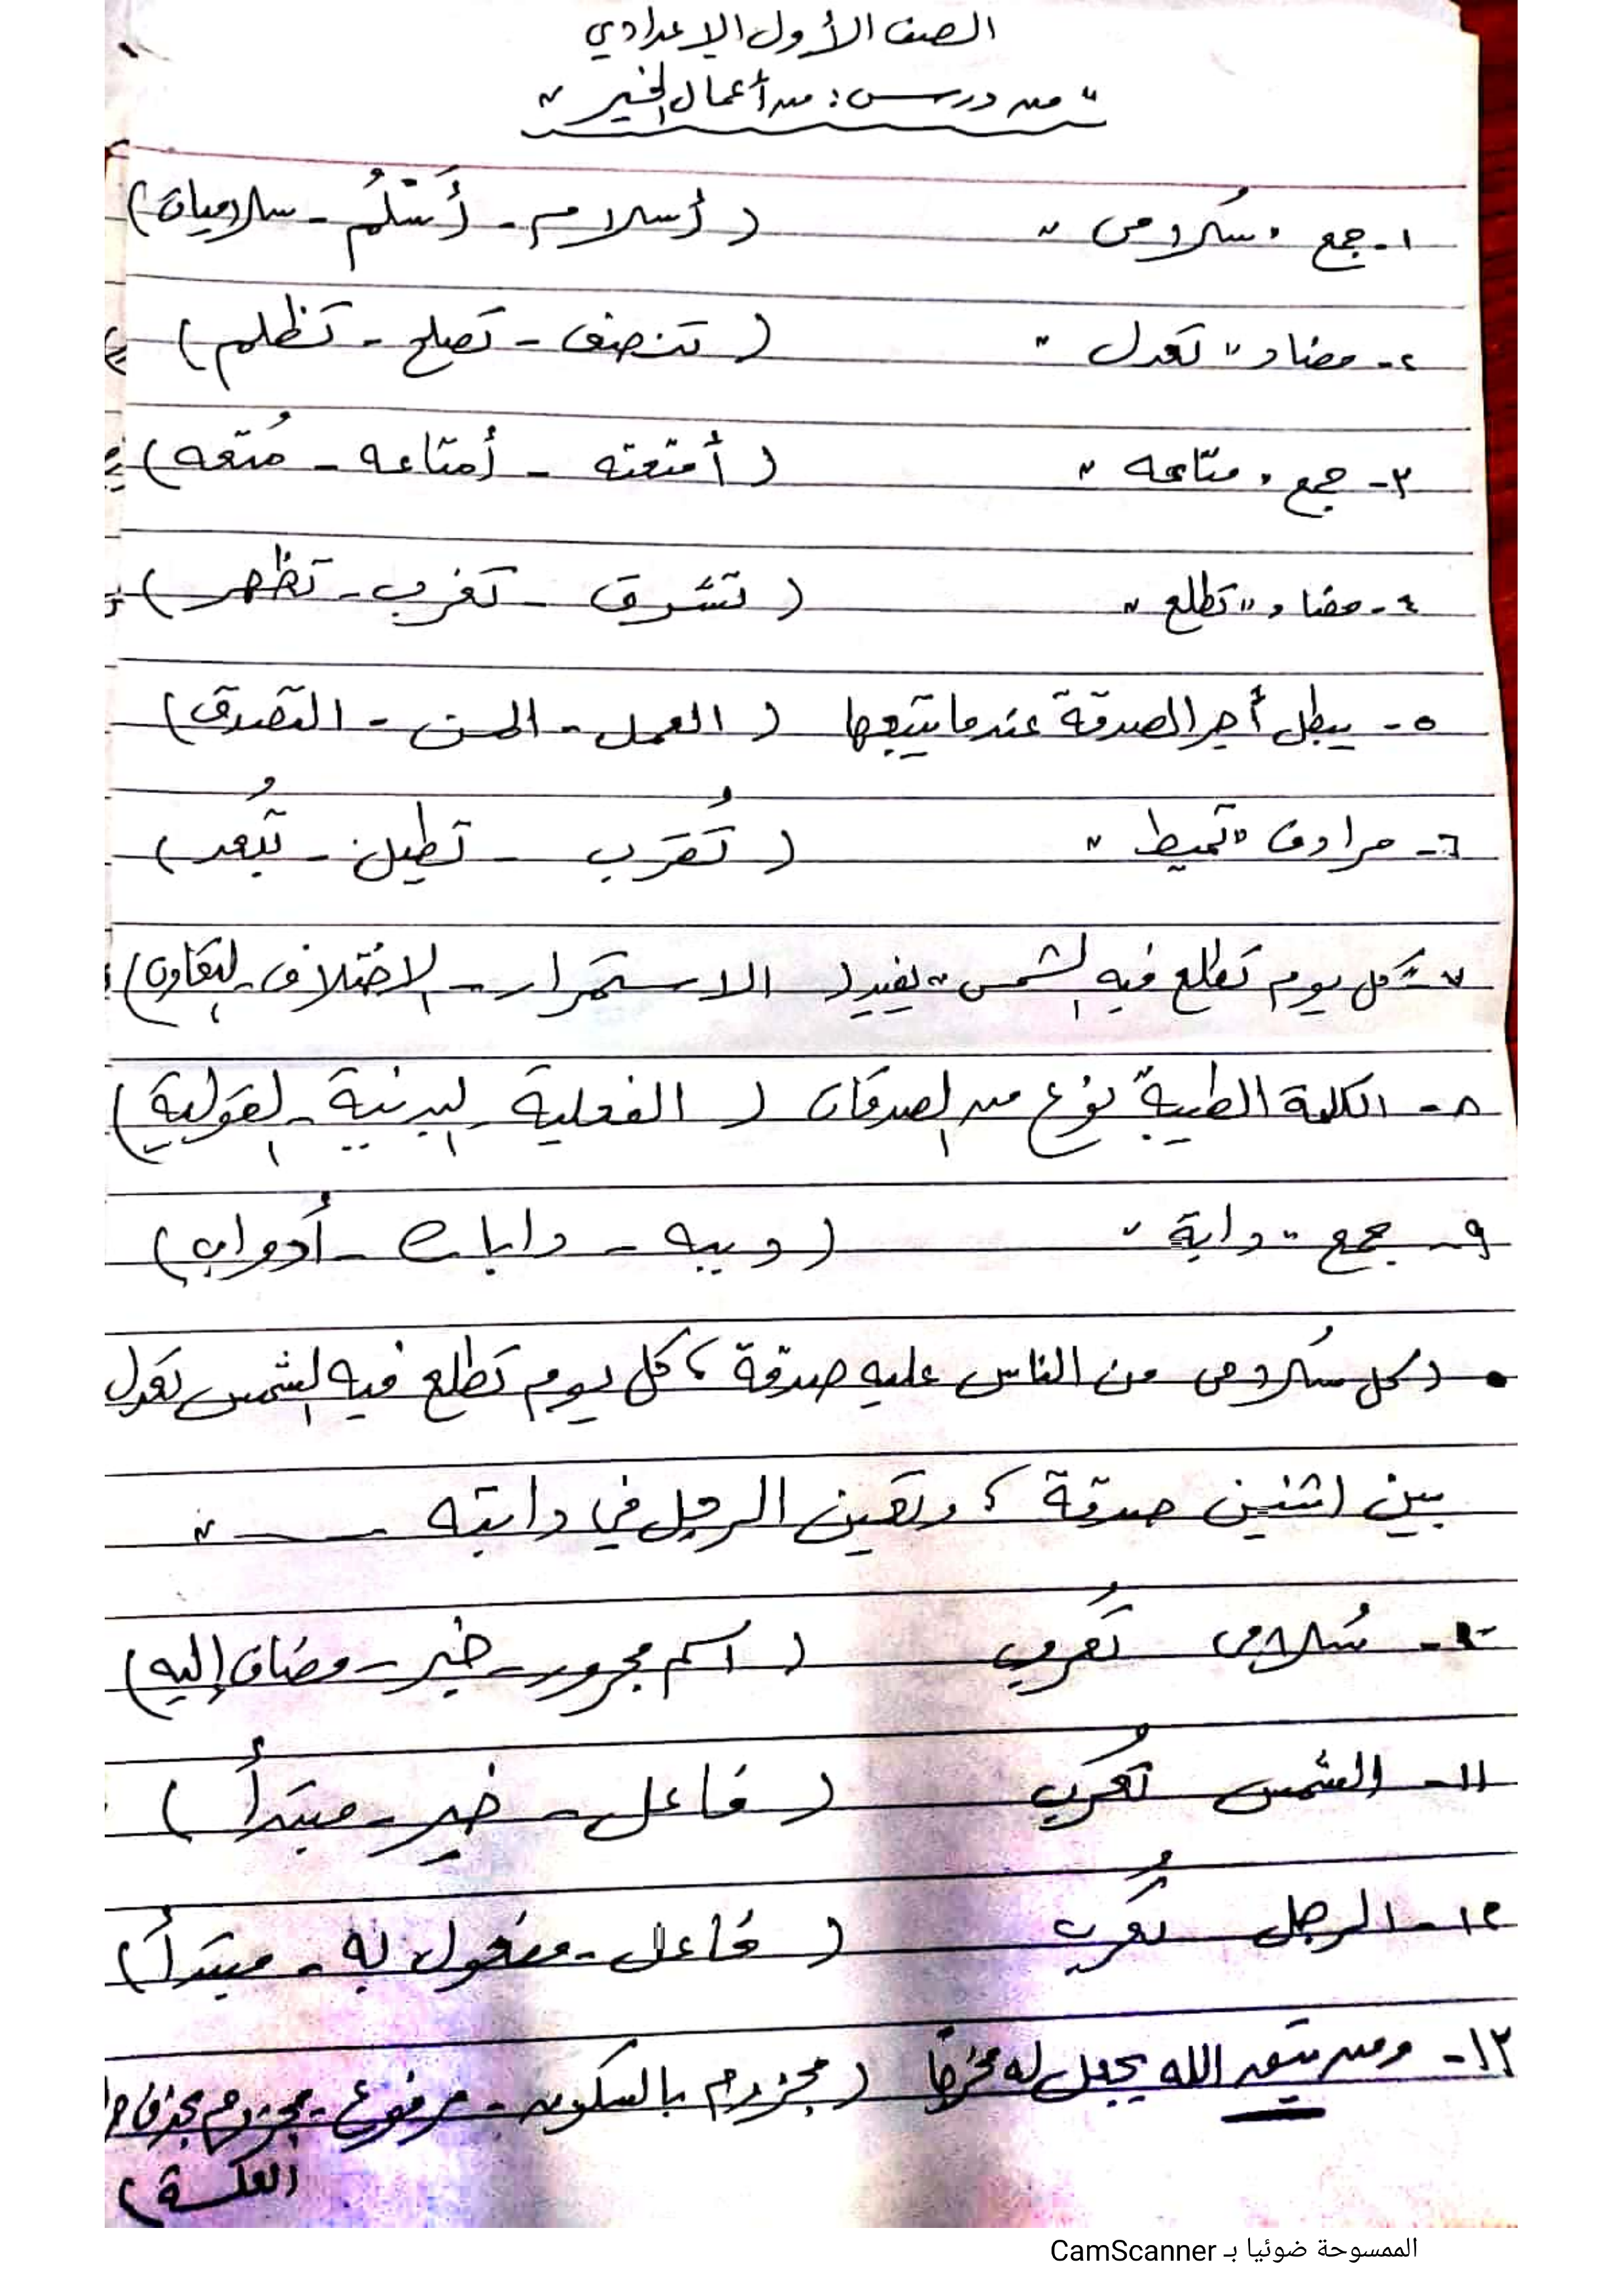 الصف الأول الإعدادي
"من درس: من أعمال الخير"
١- جمع "سُلامى" (أسلام - أَسْلُم - سلاميات)
٢- مضاد "تعدل" (تنصف - تصلح - تظلم)
٣- جمع "متاعه" (أمتعته - أمتاعه - مُتعه)
٤- مضاد "تطلع" (تشرق - تغرب - تظهر)
٥- يبطل أجر الصدقة عندما يتبعها (العمل - المن - التصدق)
٦- مرادف "تميط" (تُقرب - تطيل - تُبعد)
٧- "كل يوم تطلع فيه الشمس" يفيد (الاستمرار - الاختلاف - التعاون)
٨- الكلمة الطيبة نوع من الصدقات (الفعلية - البدنية - القولية)
٩- جمع "دابة" (دبيبه - دابات - أدواب)
• (كل سُلامى من الناس عليه صدقة، كل يوم تطلع فيه الشمس تعدل
بين اثنين صدقة، وتعين الرجل في دابته ــــ"
١٠- سُلامى تُعرب (اسم مجرور - خبر - مضاف إليه)
١١- الشمس تُعرب (فاعل - خبر - مبتدأ)
١٢- الرجل تُعرب (فاعل - مفعول به - مبتدأ)
١٣- ومن يتق الله يجعل له مخرجًا (مجزوم بالسكون - مرفوع - مجزوم بحذف
العلة)
الممسوحة ضوئيا بـ CamScanner